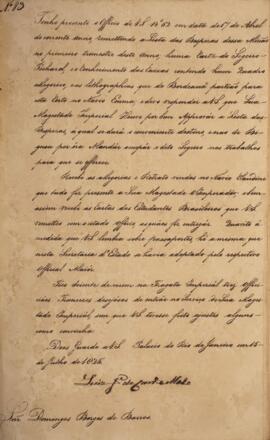 Nº 13
Tenho presente o Officio de V.S. Nº 53 em data de 17 de Abril
do corrente anno, remettendo a Lista das Despezas dessa Missão
no primeiro trimestre deste anno, huma Carta de
e conhecimento das Caixas contendo hum Quadro
allegorico, e as lithographias que de Bordeaux partirão para
esta Corte no Navio e devo responder a V.S. que Sua
Magestade Imperial Houve por bem Approvar a Lista das
Despezas, a qual se dará o conveniente destino, e nao Se Di-
gnou por óra Mandar a este nos trabalhos
para que se offerece
Quando as allegorias e Retrato vindos no Navio
que tudo foi presente a Sua Magestade o Imperador, e bem
assim as Cartas dos Estudantes Brasileiros que V.S.
remetteo com o citado officio, e quaes fez entregar. Quanto á
medida que V.S. lembra sobre passaportes, he a mesma que
nesta Secretaria d'Estado se havia adoptado pelo respectivo
Official Maior.
na Fragata Imperial tres Offi-
ciaes Francezes desejosos de entrar no Serviço de Sua Mages-
tade Imperial, sem que V.S. tivesse feito ajustes alguns
como convinha.
Deos Guarde a V.S. Palacio do Rio de Janeiro em 15
de Julho de 1826
Snr. Domingos Borges de Barros